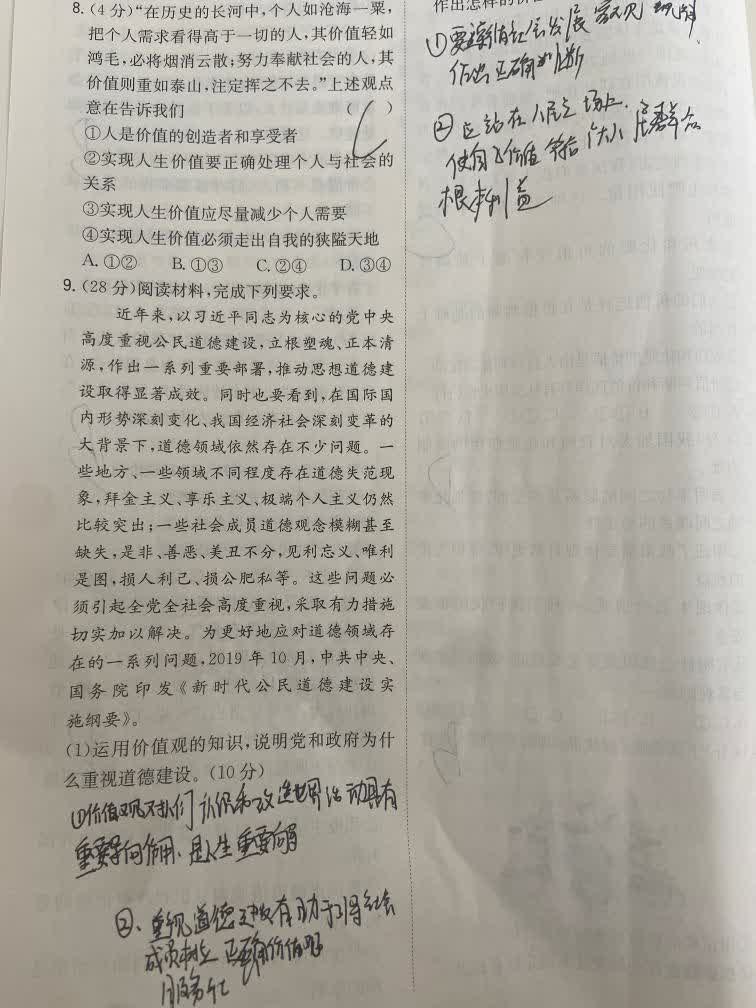 8. (4分)“在历史的长河中,个人如沧海一粟,
把个人需求看得高于一切的人,其价值轻如
鸿毛,必将烟消云散;努力奉献社会的人,其
价值则重如泰山,注定挥之不去。”上述观点
意在告诉我们 ( C )
①人是价值的创造者和享受者
②实现人生价值要正确处理个人与社会的
关系
③实现人生价值应尽量减少个人需要
④实现人生价值必须走出自我的狭隘天地
A. ①② B. ①③ C. ②④ D. ③④
9. (28分)阅读材料,完成下列要求。
近年来,以习近平同志为核心的党中央
高度重视公民道德建设,立根塑魂、正本清
源,作出一系列重要部署,推动思想道德建
设取得显著成效。同时也要看到,在国际国
内形势深刻变化、我国经济社会深刻变革的
大背景下,道德领域依然存在不少问题。一
些地方、一些领域不同程度存在道德失范现
象,拜金主义、享乐主义、极端个人主义仍然
比较突出;一些社会成员道德观念模糊甚至
缺失,是非、善恶、美丑不分,见利忘义、唯利
是图,损人利己、损公肥私等。这些问题必
须引起全党全社会高度重视,采取有力措施
切实加以解决。为更好地应对道德领域存
在的一系列问题,2019年10月,中共中央、
国务院印发《新时代公民道德建设实
施纲要》。
(1)运用价值观的知识,说明党和政府为什
么重视道德建设。(10分)
①价值观对人们认识和改造世界活动具有
重要导向作用、是人生重要向导
②、重视道德建设有助于引导社会
成员树立正确价值观
服务社
作出怎样的价
①要遵循社会发展客观规律
作出正确判断
②应站在人民立场上.
使自己价值符合广大人民群众
根本利益